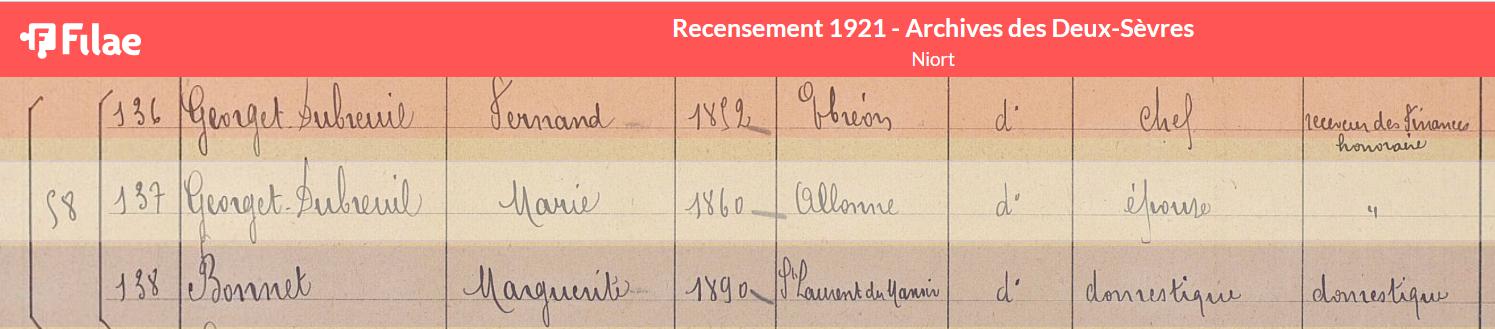 Filae
Recensement 1921 - Archives des Deux-Sèvres
Niort
136 Georget-Dubreuil Fernand 1852 d° chef receveur des finances
honoraire
58 137 Georget-Dubreuil Marie 1860 Allonne d° épouse "
138 Bonnet Marguerite 1890 St Laurent du d° domestique domestique